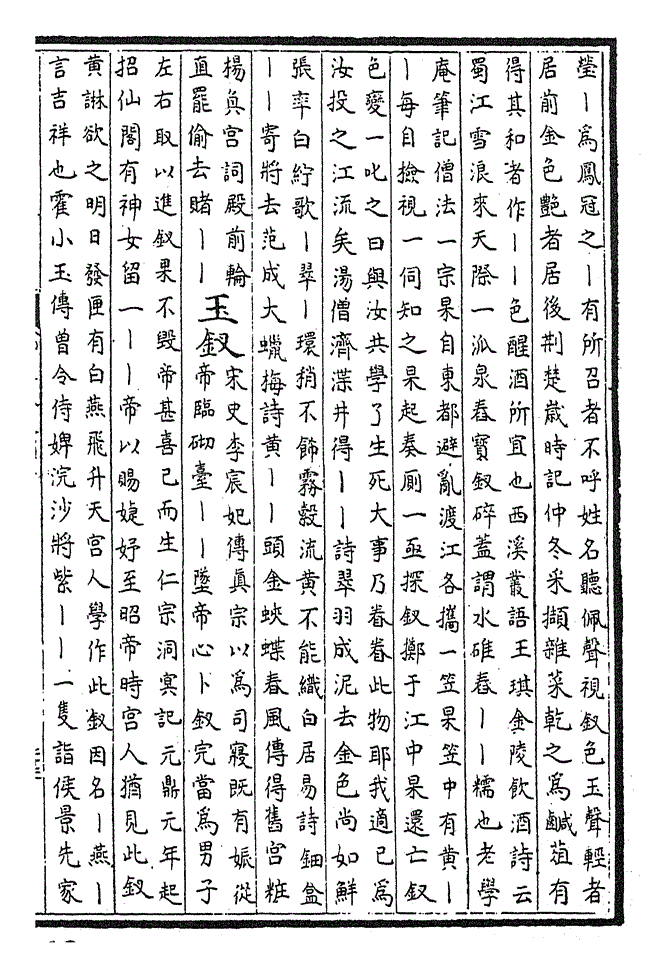 瑩丨爲鳳冠之丨有所召者不呼姓名聽佩聲視釵色玉聲輕者
居前金色艶者居後荆楚歲時記仲冬采擷雜菜乾之爲鹹葅有
得其和者作丨丨色醒酒所宜也西溪叢語王琪金陵飲酒詩云
蜀江雪浪來天際一泒泉舂寶釵碎蓋謂水碓舂丨丨糯也老學
庵筆記僧法一宗杲自東都避亂渡江各攜一笠杲笠中有黄丨
丨每自撿視一伺知之杲起奏厠一亟探釵擲于江中杲還亡釵
色變一叱之曰與汝共學了生死大事乃眷眷此物耶我適已爲
汝投之江流矣湯僧濟渫井得丨丨詩翠羽成泥去金色尚如鮮
張率白紵歌丨翠丨環稍不飾霧縠流黄不能織白居易詩鈿盒
丨丨寄將去范成大蠟梅詩黄丨丨頭金蛺蝶春風傳得舊宫粧
楊奐宫詞殿前輪
直罷偷去賭丨丨
玉釵
宋史李宸妃傳眞宗以爲司寢既有娠從
帝臨砌臺丨丨墜帝心卜釵完當爲男子
左右取以進釵果不毁帝甚喜已而生仁宗洞㝠記元鼎元年起
招仙閣有神女留一丨丨帝以賜婕妤至昭帝時宫人猶見此釵
黄諃欲之明日發匣有白燕飛升天宫人學作此釵因名丨燕丨
言吉祥也霍小玉傳曾令侍婢浣沙將紫丨丨一隻詣侯景先家